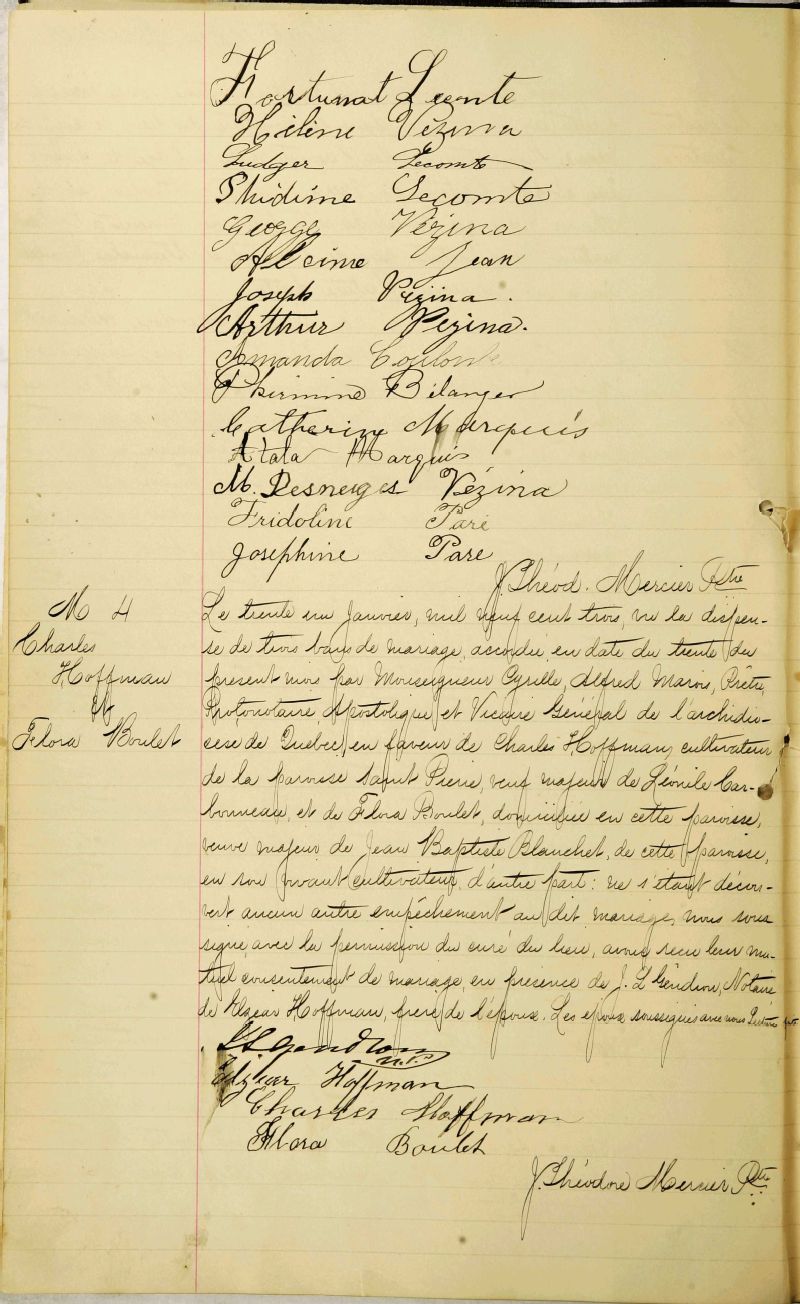 Fortunat Lecomte
Hélène Vézina
Ludger Lecomte
Phidime Lecomte
George Vézina
Alcime Jean
Joseph Vézina.
Arthur Vézina.
Amanda
Phirmine Bélanger
Catherine Marquis
Atala Marquis
M. Desneiges Vézina
Fridoline Paré
Joséphine Paré
J. Théod. Mercier Ptre
M 4
Charles
Hoffman
et
Flora Boulet
Le trente un Janvier, mil neuf cent trois, vu la dispen-
se de trois bans de mariage, accordée en date du trente du
présent mois par Monseigneur Cyrille, Alfred Marois, Prêtre,
Protonotaire, Apostolique et Vicaire Général de l'archidio-
cèse de Québec, en faveur de Charles Hoffman, cultivateur
de la paroisse Saint Pierre, veuf majeur de Léonile Car-
bonneau, et de Flora Boulet, domiciliée en cette paroisse,
veuve majeur de Jean Baptiste Blanchet, de cette paroisse,
en son vivant cultivateur, d'autre part: ne s'étant décou-
vert aucun autre empêchement au dit mariage, nous sous-
signé, avec la permission du curé du lieu, avons reçu leur mu-
tuel consentement de mariage, en présence de J. L Gendron, Notaire
de Elzear Hoffman, frère de l'époux. Les époux soussignés avec nous Lecture faite.
J L Gendron
N.P.
Elzear Hoffman
Charles Hoffman
Flora Boulet
J. Théodore Mercier Ptre